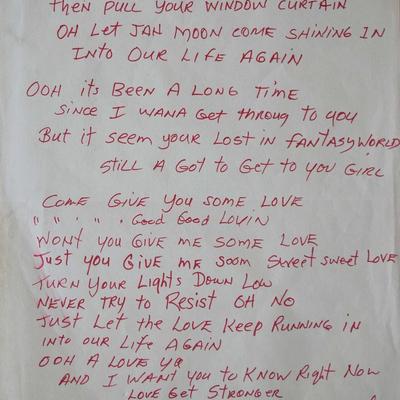 then PULL YOUR WINDOW CURTAIN
OH LET JAH MOON COME SHINING IN
INTO OUR LIFE AGAIN
OOH its BEEN A LONG TIME
SINCE I WANA Get throug to you
But it seem your Lost in FANTASY WORLD
STILL A Got to Get to you GIRL
COME GIVE YOU SOME LOVE
" " " " . Good Good LOVIN
WONT you GIVE ME SOME LOVE
Just you GIVE me soom Sweet sweet LOVE
TURN YOUR LIGHTS DOWN LOW
NEVER TRY to RESIST OH NO
JUST LET the LOVE KEEP RUNNING IN
INTO OUR LIFE AGAIN
OOH A LOVE YA
AND I WANT you to KNOW RIGHT NOW
LOVE GET STRONGER